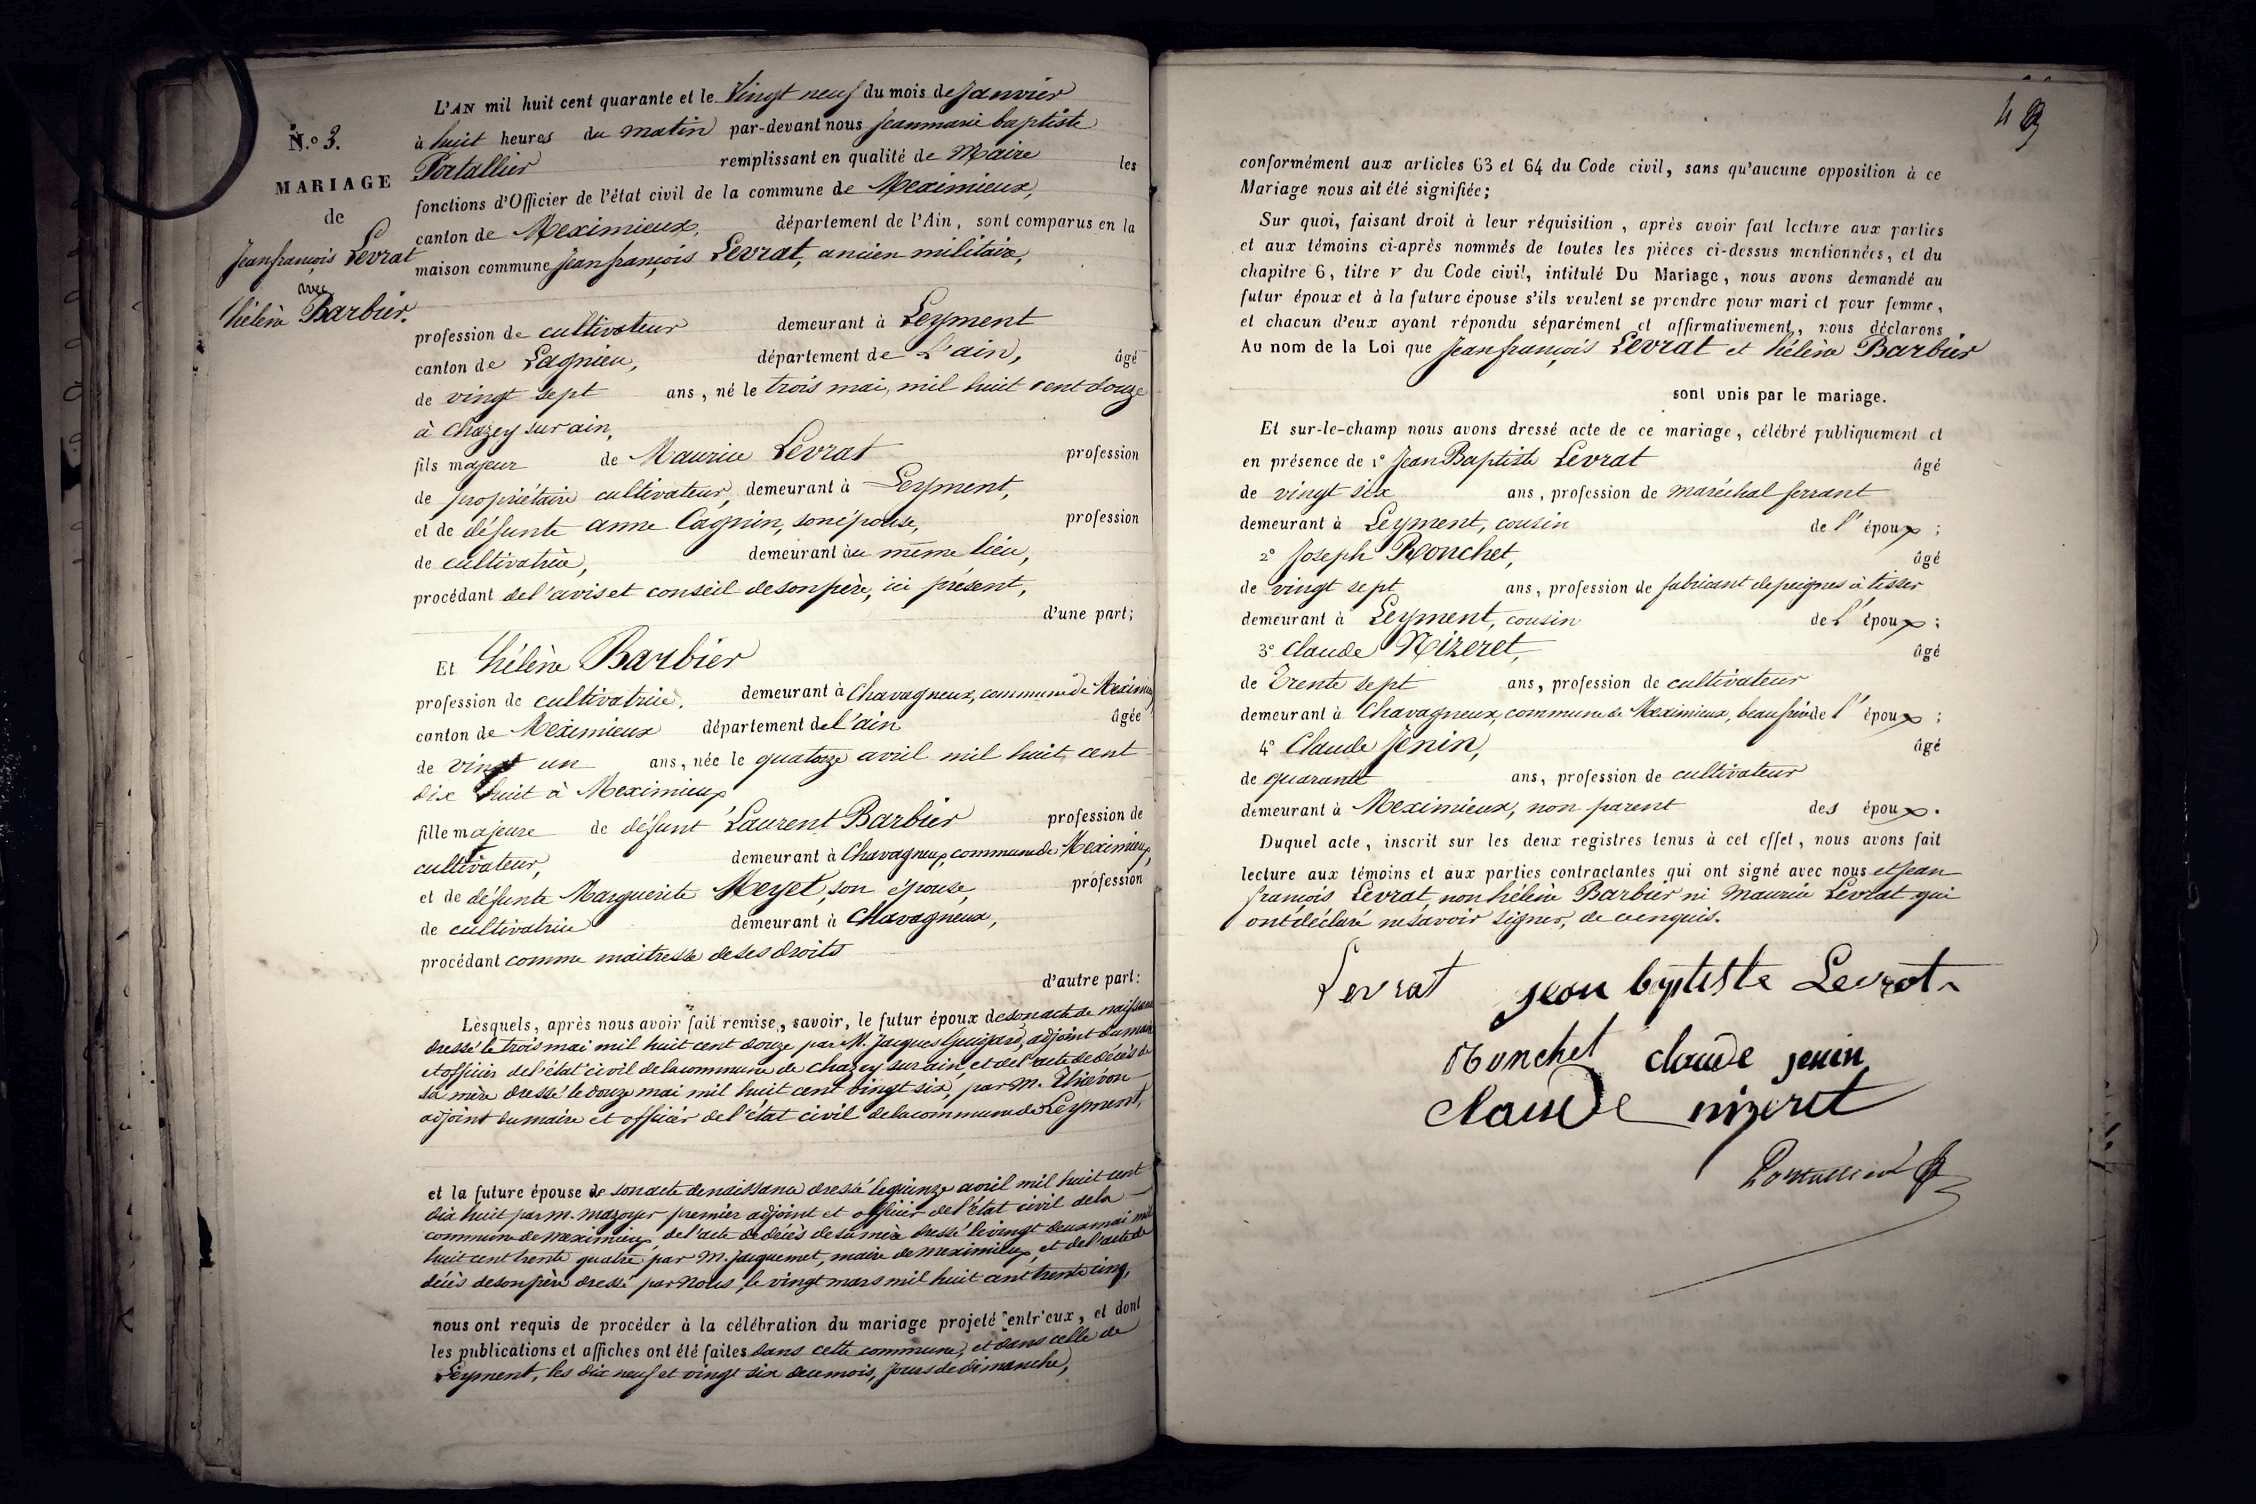 N.º 3.
MARIAGE
de
Jean françois Levrat
avec
hélène Barbier.
L'AN mil huit cent quarante et le Vingt neuf du mois de Janvier
à huit heures du matin par-devant nous Jeanmarie baptiste
Portallier remplissant en qualité de Maire les
fonctions d'Officier de l'état civil de la commune de Meximieux,
canton de Meximieux, département de l'Ain, sont comparus en la
maison commune Jean françois Levrat, ancien militaire,
profession de cultivateur demeurant à Leyment
canton de Lagnieu, département de L'ain, âgé
de vingt sept ans, né le trois mai, mil huit cent douze
à Chazey sur ain,
fils majeur de Maurice Levrat profession
de propriétaire cultivateur, demeurant à Leyment,
et de défunte anne Cagnin, son épouse, profession
de cultivatrice, demeurant au même lieu,
procédant de l'avis et conseil de son père, ici présent,
d'une part;
Et hélène Barbier
profession de cultivatrice, demeurant à Chavagneux, commune de Meximieux
canton de Meximieux département de l'ain âgée
de vingt un ans, née le quatorze avril mil huit cent
dix huit à Meximieux
fille majeure de défunt Laurent Barbier profession de
cultivateur, demeurant à Chavagneux commune de Meximieux,
et de défunte Marguerite Meyet, son épouse, profession
de cultivatrice demeurant à Chavagneux,
procédant comme maitresse de ses droits
d'autre part:
Lesquels, après nous avoir fait remise, savoir, le futur époux de son acte de naissance
dressé le trois mai mil huit cent douze par M. Jacques Guigard, adjoint du maire
et officier de l'état civil de la commune de Chazey sur ain, et de l'acte de décès de
sa mère dressé le douze mai mil huit cent vingt six, par M. Thievon
adjoint du maire et officier de l'état civil de la commune de Leyment,
et la future épouse de son acte de naissance dressé le quinze avril mil huit cent
dix huit par M. Mazoyer premier adjoint et officier de l'état civil de la
commune de Meximieux, de l'acte de décès de sa mère dressé le vingt deux mai mil
huit cent trente quatre par M. Jacquemet, maire de Meximieux, et de l'acte de
décès de son père dressé par Nous, le vingt mars mil huit cent trente cinq,
nous ont requis de procéder à la célébration du mariage projeté entr'eux, et dont
les publications et affiches ont été faites dans cette commune, et dans celle de
Leyment, les dix neuf et vingt six de ce mois, jours de dimanche,
conformément aux articles 63 et 64 du Code civil, sans qu'aucune opposition à ce
Mariage nous ait été signifiée;
Sur quoi, faisant droit à leur réquisition, après avoir fait lecture aux parties
et aux témoins ci-après nommés de toutes les pièces ci-dessus mentionnées, et du
chapitre 6, titre V du Code civil, intitulé Du Mariage, nous avons demandé au
futur époux et à la future épouse s'ils veulent se prendre pour mari et pour femme,
et chacun d'eux ayant répondu séparément et affirmativement, nous déclarons,
Au nom de la Loi que Jean françois Levrat et hélène Barbier
sont unis par le mariage.
Et sur-le-champ nous avons dressé acte de ce mariage, célébré publiquement et
en présence de 1º Jean Baptiste Levrat âgé
de vingt six ans, profession de maréchal ferrant
demeurant à Leyment, cousin de l'époux;
2º Joseph Ronchet, âgé
de vingt sept ans, profession de fabricant de peignes à tisser
demeurant à Leyment, cousin de l'époux;
3º Claude Nizeret, âgé
de Trente sept ans, profession de cultivateur
demeurant à Chavagneux, commune de Meximieux, beau frère de l'époux;
4º Claude Jenin, âgé
de quarante ans, profession de cultivateur
demeurant à Meximieux, non parent des époux.
Duquel acte, inscrit sur les deux registres tenus à cet effet, nous avons fait
lecture aux témoins et aux parties contractantes qui ont signé avec nous et Jean
françois Levrat, non hélène Barbier ni Maurice Levrat qui
ont déclaré ne savoir signer, de ce enquis.
Levrat jean baptiste Levrat
Ronchet claude jenin
claude nizeret
Portallier